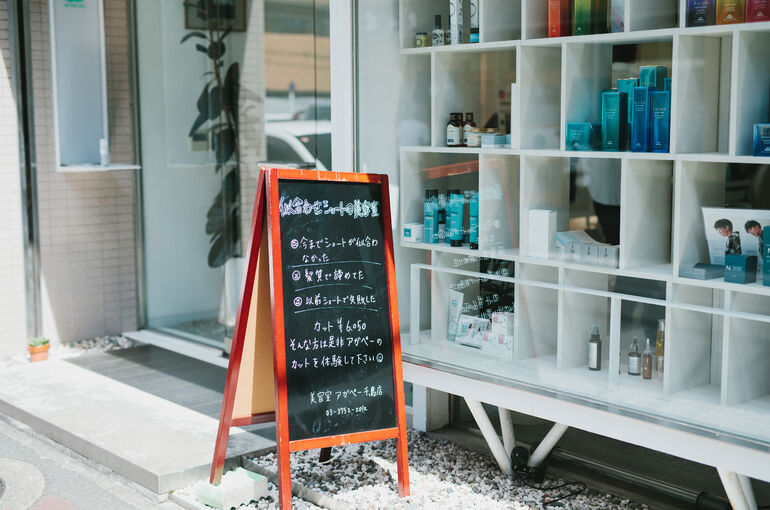 似合わせショートの美容室
① 今までショートが似合わ
なかった
② 髪質で諦めてた
③ 以前ショートで失敗した
カット ¥6,050
そんな方は是非アガペーの
カットを体験して下さい☺
美容室 アガペー千鳥店
03-3752-2012
N.